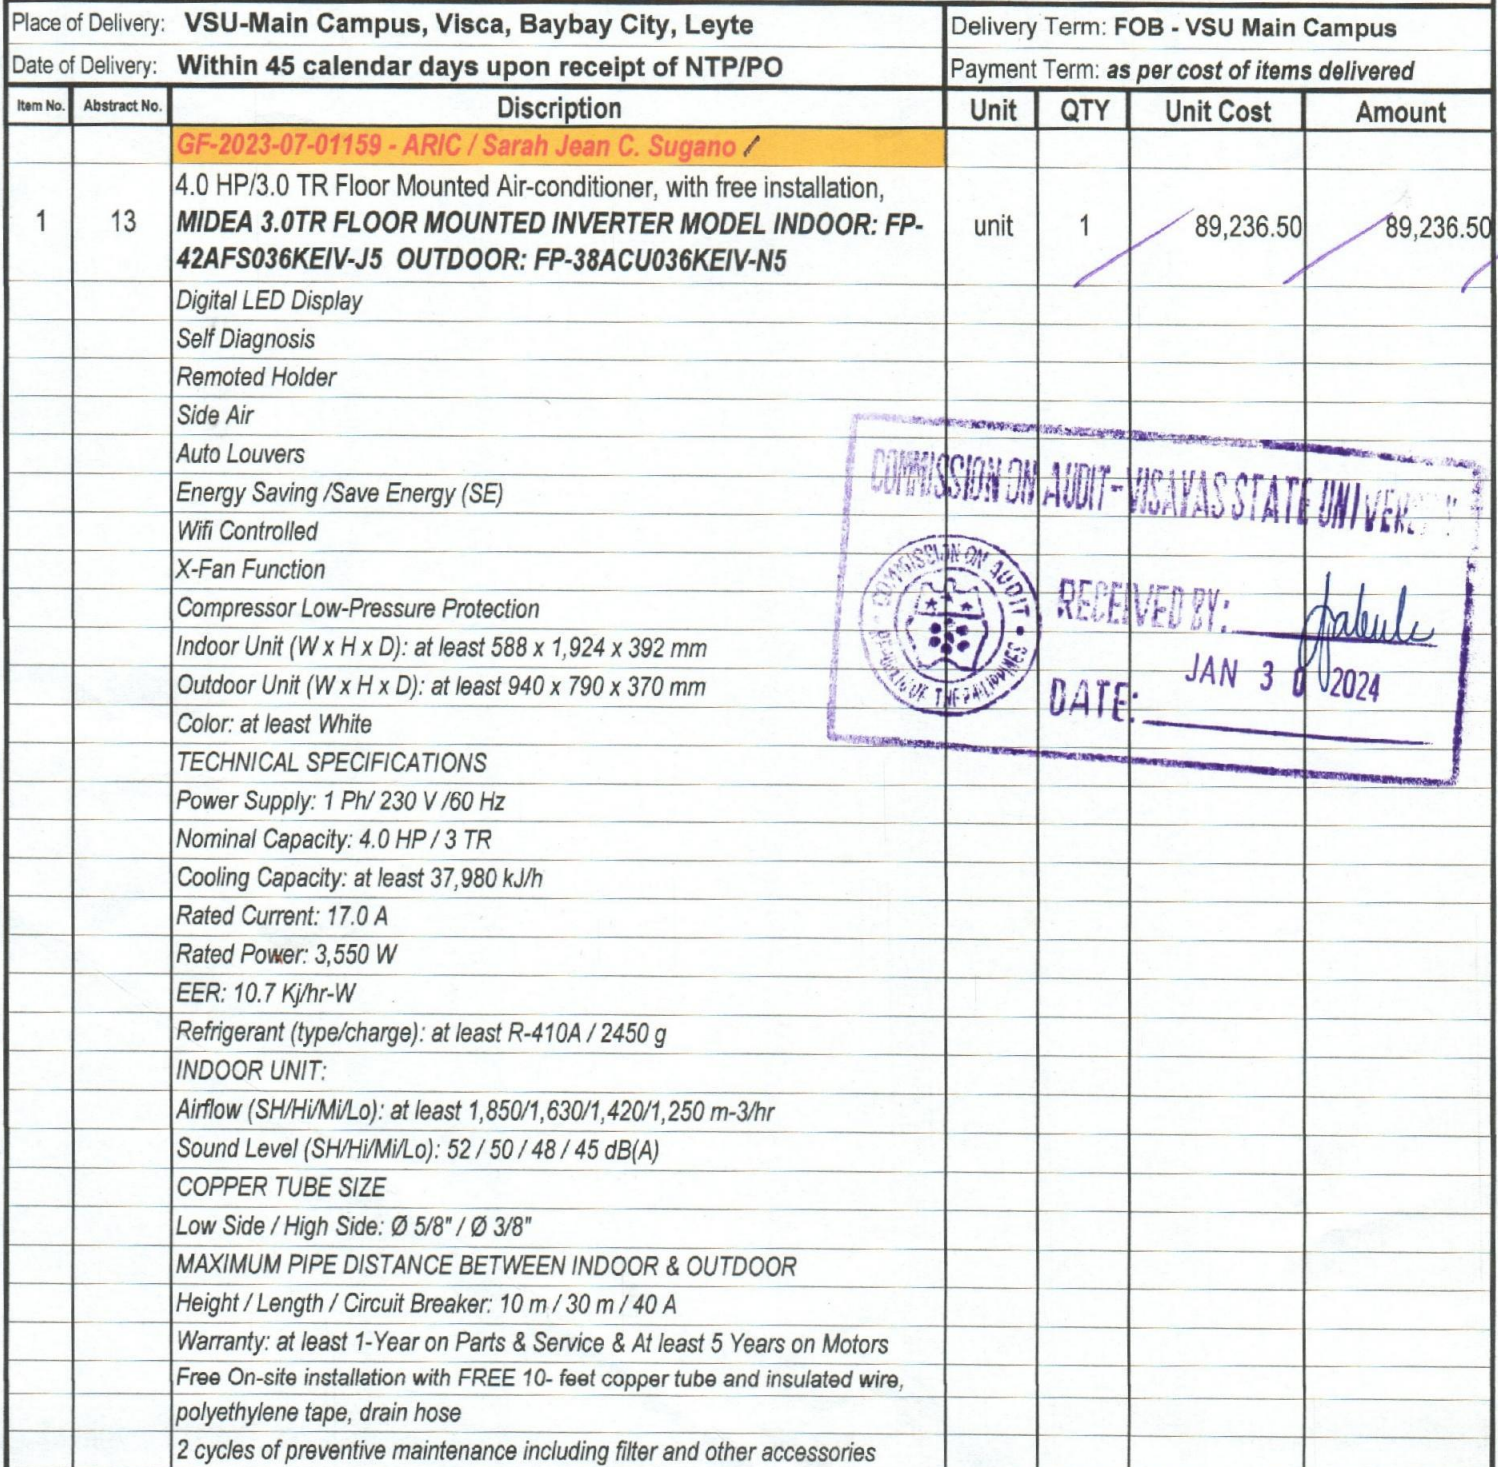 Place of Delivery: VSU-Main Campus, Visca, Baybay City, Leyte
Delivery Term: FOB - VSU Main Campus
Date of Delivery: Within 45 calendar days upon receipt of NTP/PO
Payment Term: as per cost of items delivered
Item No. Abstract No. Discription Unit QTY Unit Cost Amount
GF-2023-07-01159 - ARIC / Sarah Jean C. Sugano
4.0 HP/3.0 TR Floor Mounted Air-conditioner, with free installation,
1 13 MIDEA 3.0TR FLOOR MOUNTED INVERTER MODEL INDOOR: FP- unit 1 89,236.50 89,236.50
42AFS036KEIV-J5 OUTDOOR: FP-38ACU036KEIV-N5
Digital LED Display
Self Diagnosis
Remoted Holder
Side Air
Auto Louvers
Energy Saving /Save Energy (SE)
Wifi Controlled
X-Fan Function
Compressor Low-Pressure Protection
Indoor Unit (W x H x D): at least 588 x 1,924 x 392 mm
Outdoor Unit (W x H x D): at least 940 x 790 x 370 mm
Color: at least White
COMMISSION ON AUDIT - VISAYAS STATE
COMMISSION ON AUDIT
REPUBLIC OF THE PHILIPPINES
RECEIVED BY:
JAN 30 2024
DATE:
TECHNICAL SPECIFICATIONS
Power Supply: 1 Ph/ 230 V /60 Hz
Nominal Capacity: 4.0 HP / 3 TR
Cooling Capacity: at least 37,980 kJ/h
Rated Current: 17.0 A
Rated Power: 3,550 W
EER: 10.7 Kj/hr-W
Refrigerant (type/charge): at least R-410A / 2450 g
INDOOR UNIT:
Airflow (SH/Hi/Mi/Lo): at least 1,850/1,630/1,420/1,250 m-3/hr
Sound Level (SH/Hi/Mi/Lo): 52 / 50 / 48 / 45 dB(A)
COPPER TUBE SIZE
Low Side / High Side: Ø 5/8" / Ø 3/8"
MAXIMUM PIPE DISTANCE BETWEEN INDOOR & OUTDOOR
Height / Length / Circuit Breaker: 10 m / 30 m / 40 A
Warranty: at least 1-Year on Parts & Service & At least 5 Years on Motors
Free On-site installation with FREE 10- feet copper tube and insulated wire,
polyethylene tape, drain hose
2 cycles of preventive maintenance including filter and other accessories